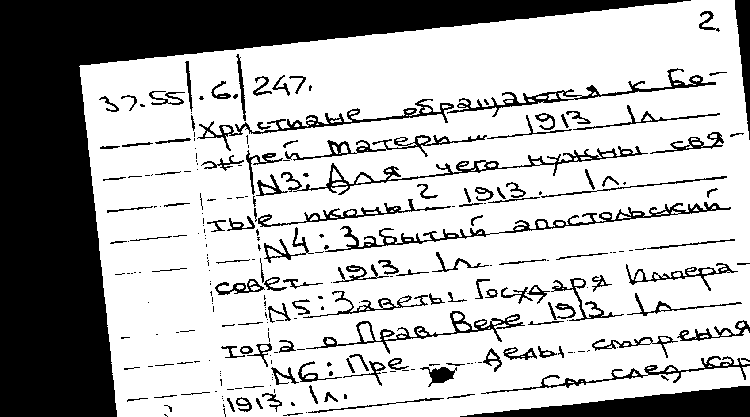 2.
37.55 .6. 247.
Христиане обращаются к Бо-
жией Матери... 1913 1л.
N3: Для чего нужны свя-
тые иконы? 1913. 1л.
N4: Забытый апостольский
совет. 1913. 1л.
N5: Заветы Государя Импера-
тора о Прав. Вере. 1913. 1л
N6: Пре делы смирения
1913. 1л. См след кар